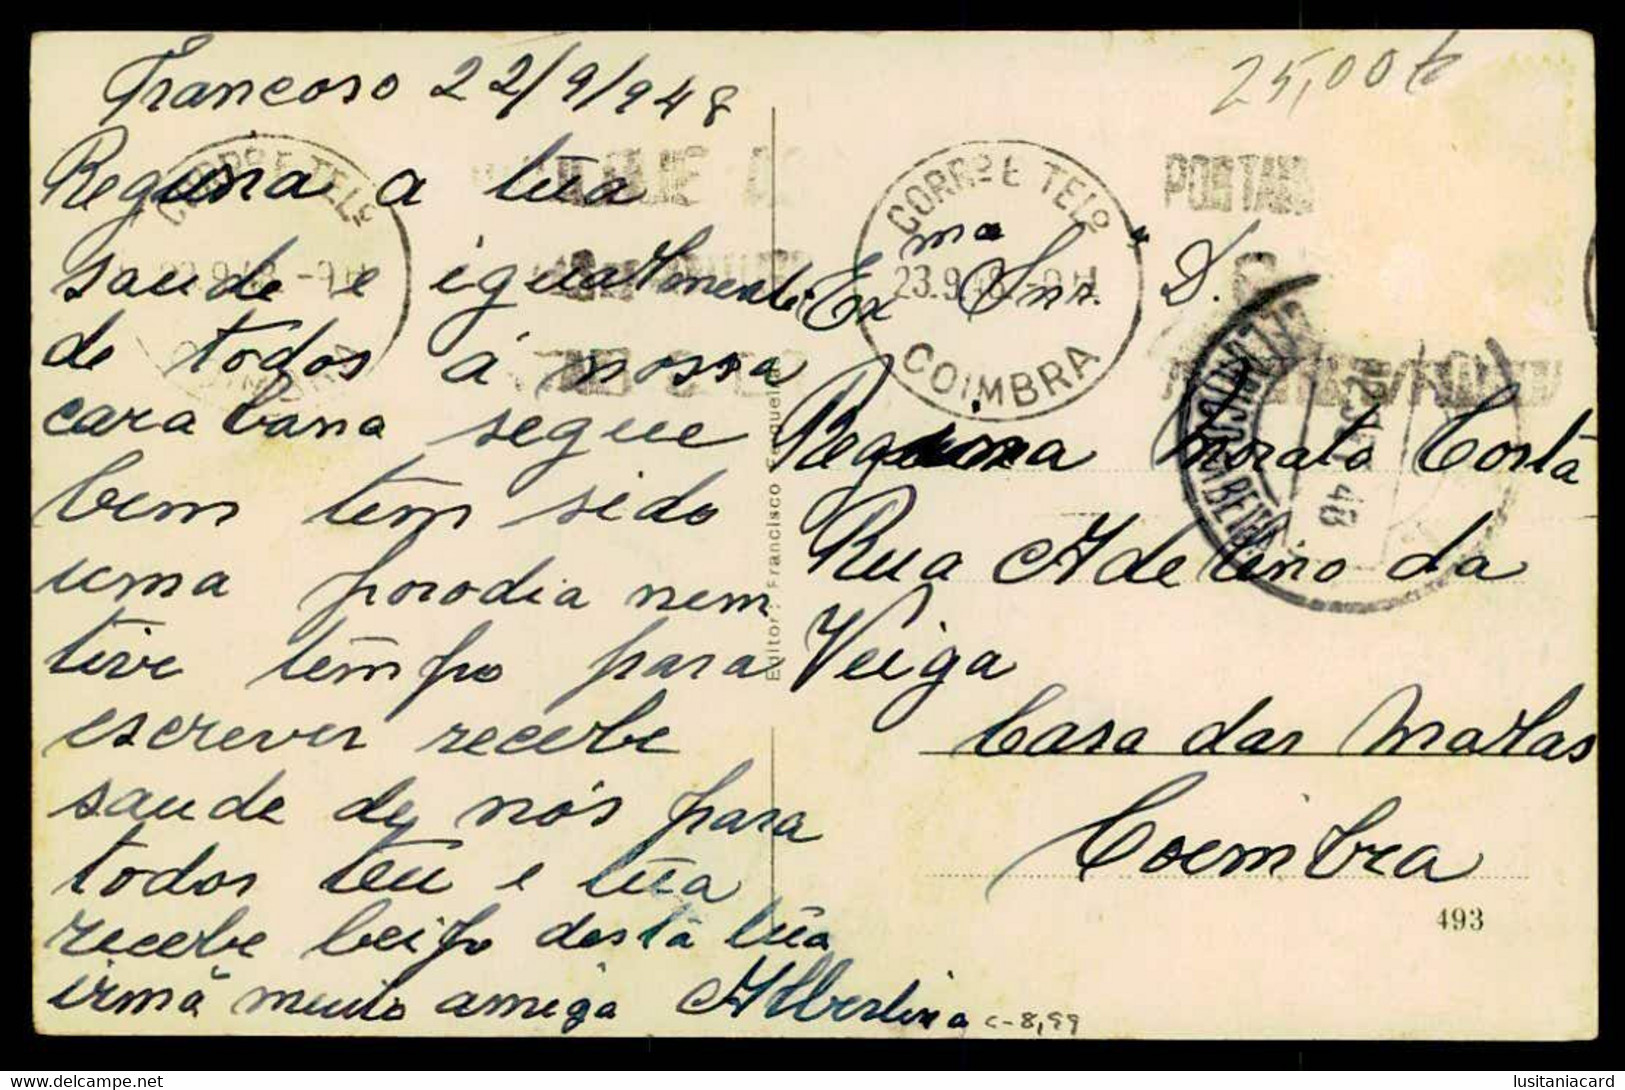 Trancoso 22/9/948
Regina a túa
saude e igualmente
de todos á nossa
carabana segue
bem tem sido
uma porodia nem
tive tempo para
escrever recebe
saude de nós para
todos teu e túa
recebe beijo desta túa
irmã muito amiga Albertina
c-8,99
25,00
CORRº E TELº
23.9.48 - 9 H
COIMBRA
CORRº E TELº
23.9.48 - 9 H
COIMBRA
Exma Snr. D.
Regina Morato Costa
Rua Adelino da
Veiga
Casa das Malas
Coimbra
493
Editor: Francisco
lusitaniacard